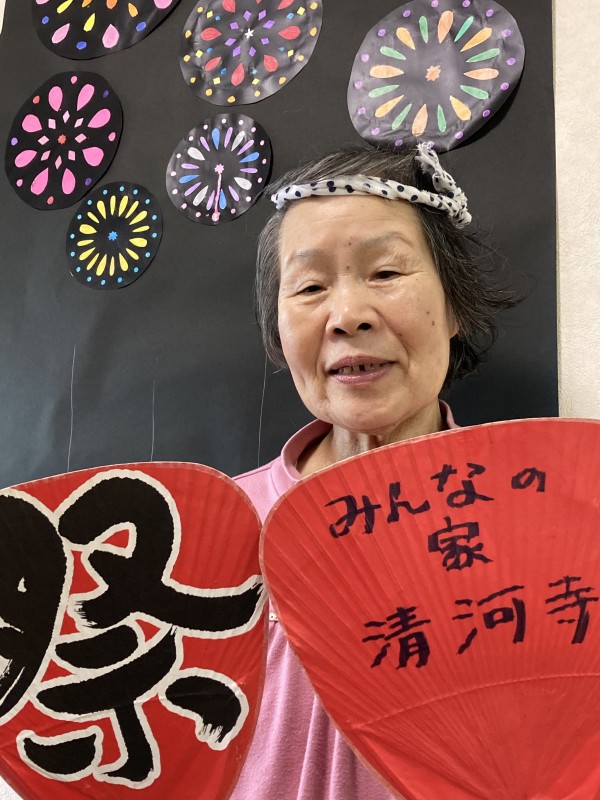 祭
みんなの
家
清河寺